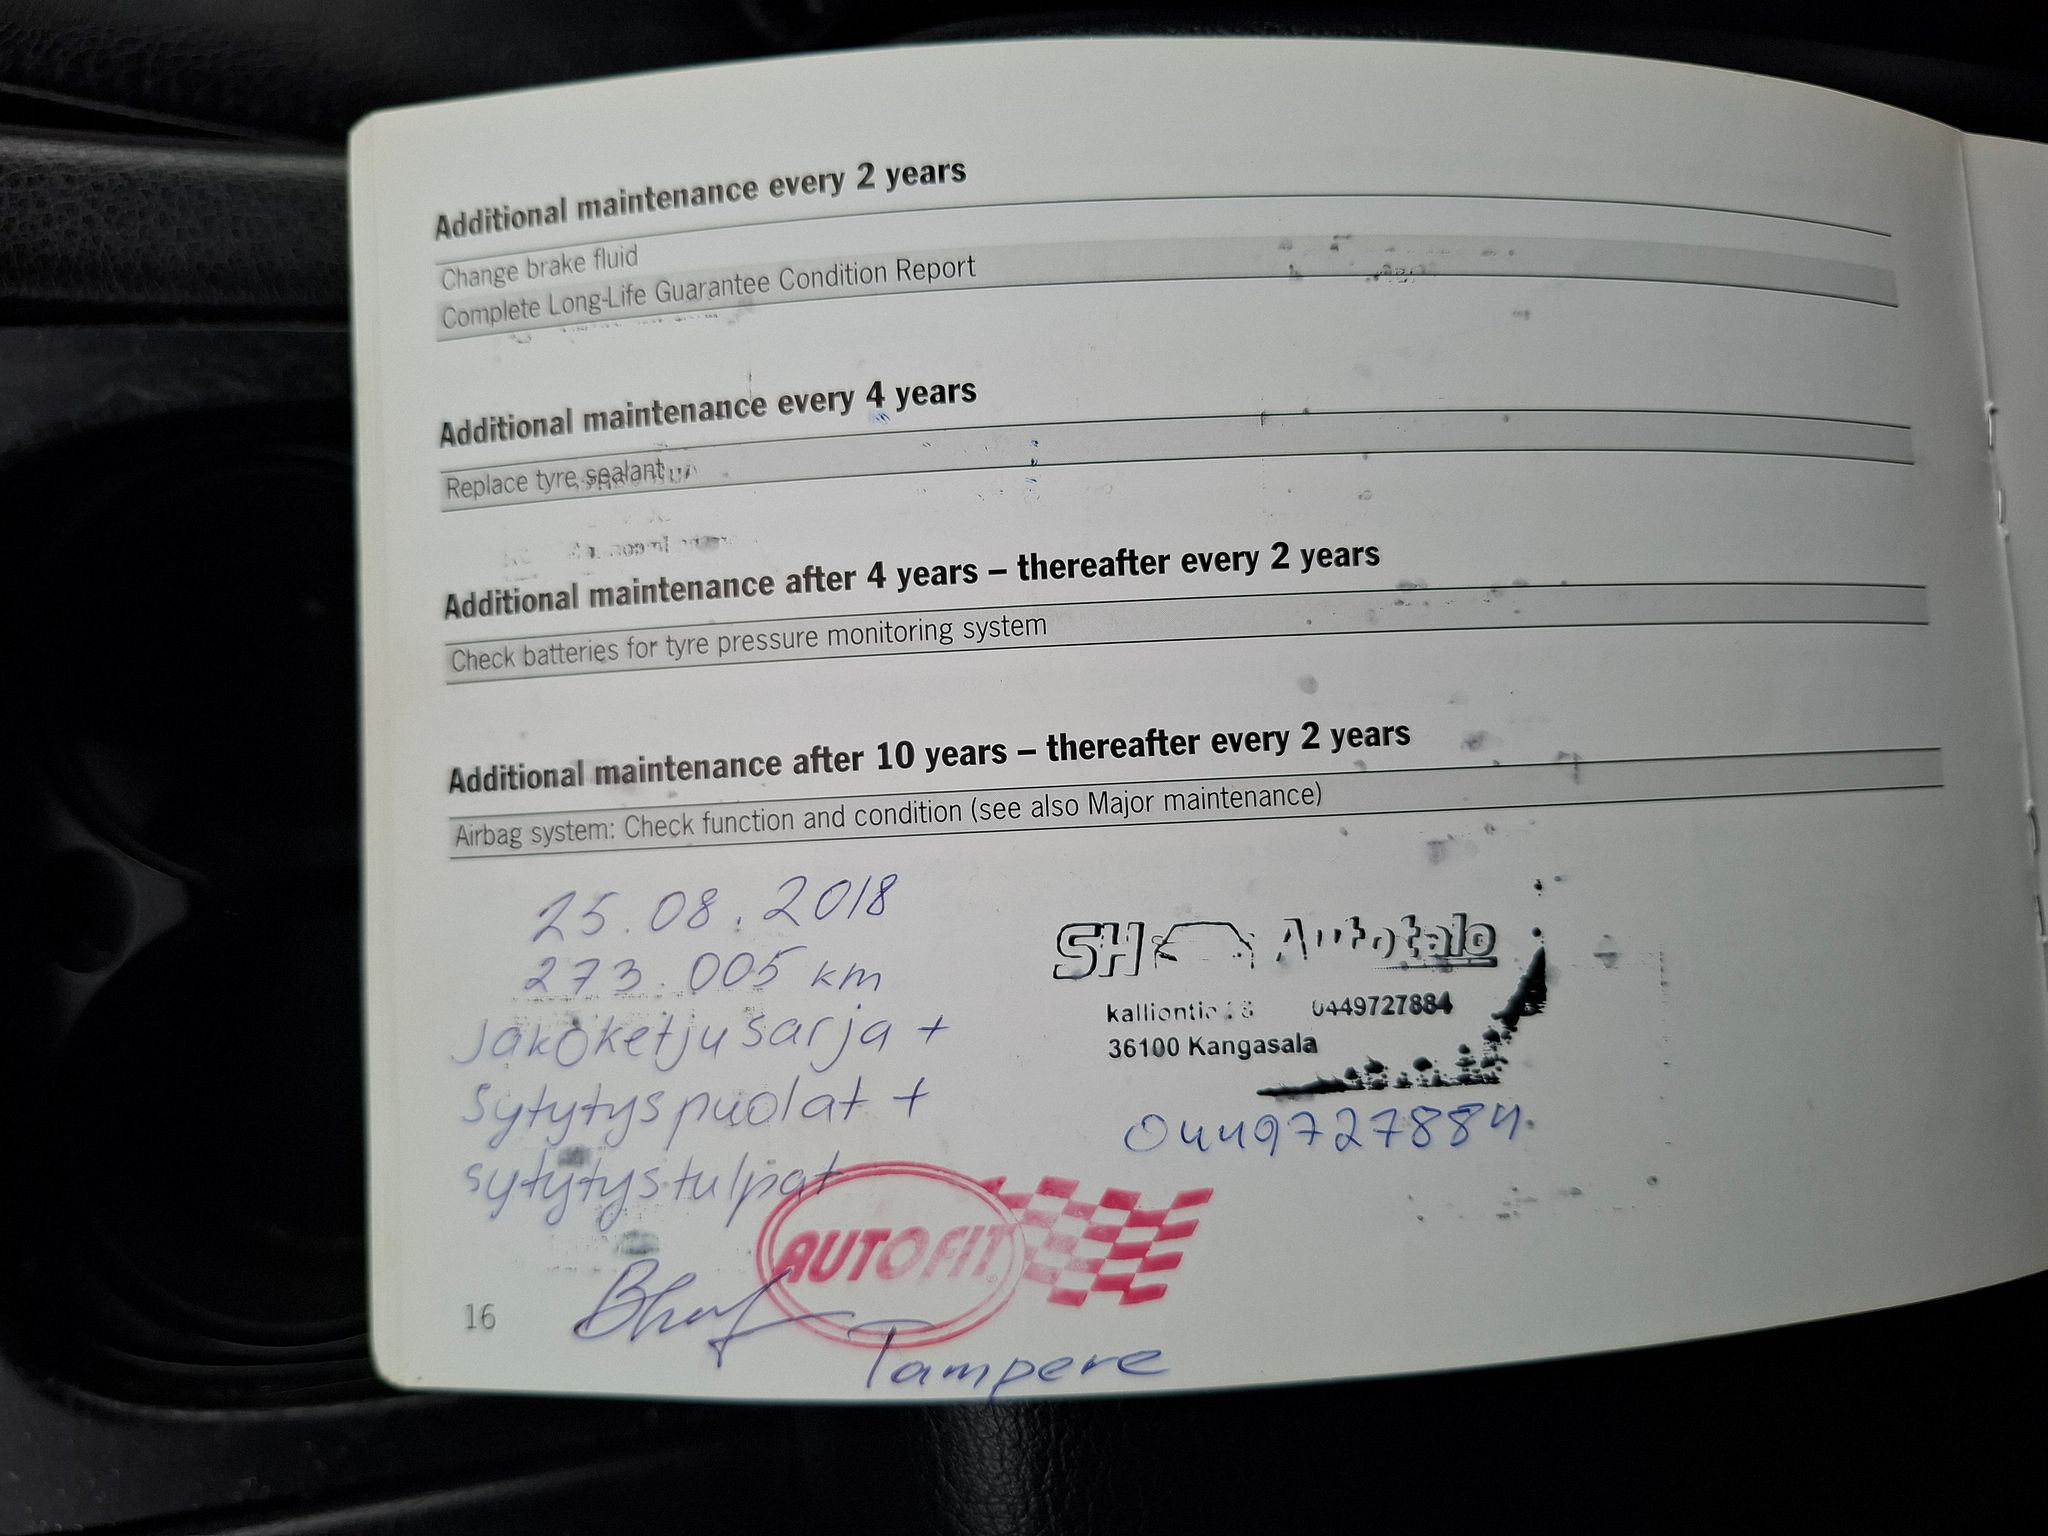 Additional maintenance every 2 years
Change brake fluid
Complete Long-Life Guarantee Condition Report
Additional maintenance every 4 years
Replace tyre sealant
Additional maintenance after 4 years – thereafter every 2 years
Check batteries for tyre pressure monitoring system
Additional maintenance after 10 years – thereafter every 2 years
Airbag system: Check function and condition (see also Major maintenance)
25.08.2018
273.005 km
Jakoketjusarja +
Sytytyspuolat +
sytytystulpat
SH Autotalo
0449727884
36100 Kangasala
0449727884
AUTOFIT
Tampere
16